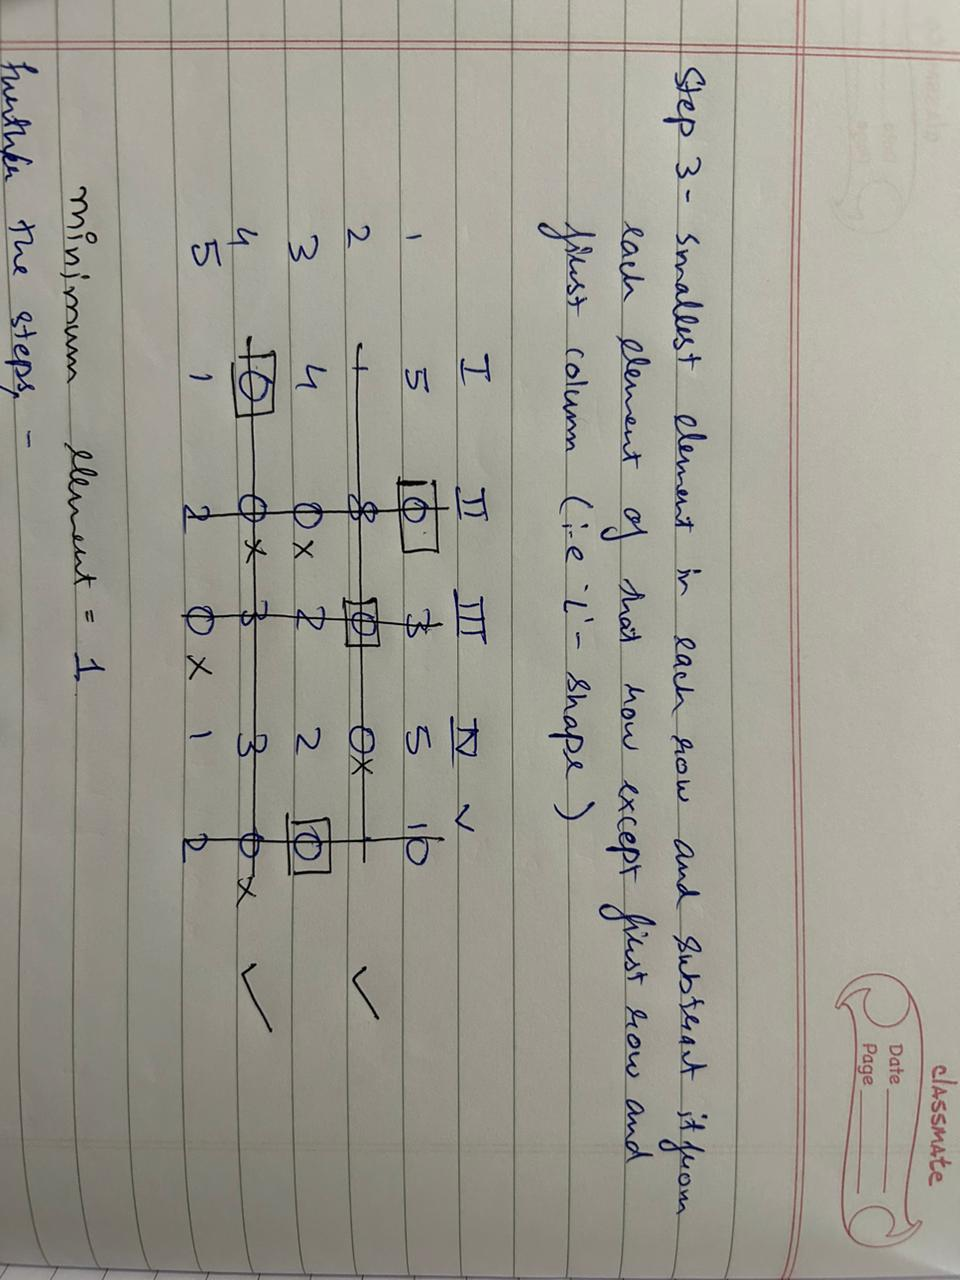 classmate
Date
Page
Step 3 - smallest element in each row and substract it from
each element of that row except first row and
first column (i.e 'L' - shape)
I II III IV V
1 5 0 3 5 10
2 1 8 0 0x ✓
3 4 0x 2 2 0
4 0 0x 3 3 0x ✓
5 1 2 0x 1 2
minimum element = 1
further the steps, -